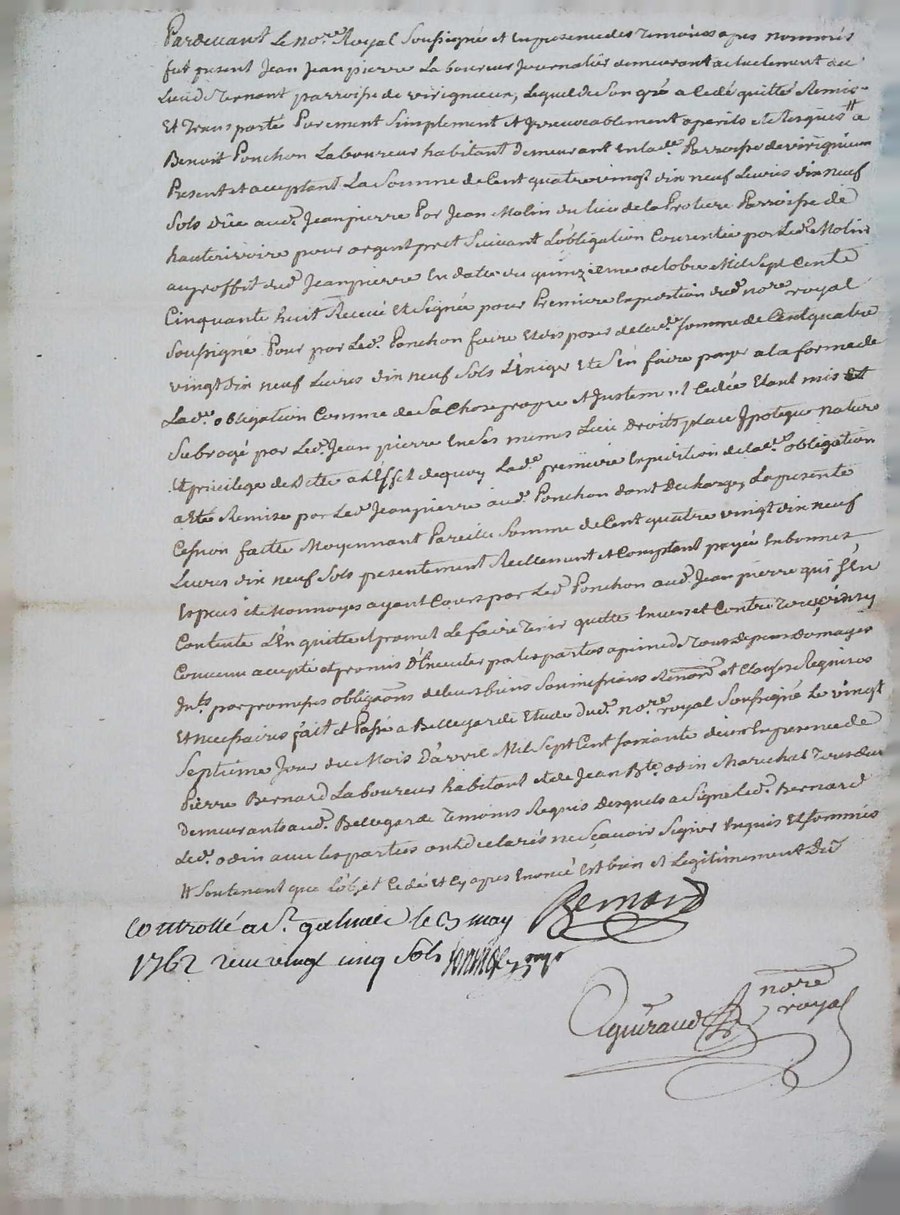 Pardevant Le no.re Royal Soussigné et En presence des Temoins apres nommés
fut present Jean Jeanpierre Laboureur Journalier demeurant actuellement au
Lieu de Ternant parroisse de virigneux, Lequel de Son gré a Cedé quitté Remis
Et Transporté Purement Simplement et Irrevocablement a perils et Risques # a
Benoit Ponchon Laboureur habitant demeurant En lad.e Parroisse de virigneux
Present et acceptant La Somme de Cent quatre vingt dix neuf Livres dix neuf
Sols düe aud. Jeanpierre Par Jean Molin du lieu de la Parroisse de
hauterivoire pour argent pret Suivant L'obligation Consentie par led. Molin
au proffit dud. Jeanpierre En datte du quinzieme octobre Mil Sept Cents
Cinquante huit Receüe Et Signée pour Premiere Expedition dud. no.re royal
Soussigné Pour par led. Ponchon faire Et disposer de lad.e Somme de Cent quatre
vingt dix neuf Livres dix neuf Sols L'Exiger Et S'En faire payer a la forme de
Lad.e obligation Comme de Sa Chose propre et Justement Cedée Etant mis et
Subrogé par led. Jeanpierre En Ses mêmes Lieu droits place Ipoteque nature
Et privilege de dette a L'Effet de quoy Lad.e premiere Expedition de lad.e obligation
a Eté Remise par led. Jeanpierre aud. Ponchon dont decharge, La presente
Cession faitte Moyennant Pareille Somme de Cent quatre vingt dix neuf
Livres dix neuf Sols presentement Reellement et Comptant payée En bonnes
Especes et Monnoyes ayant Cours par led. Ponchon aud. Jeanpierre qui S'En
Contente L'En quitte et promet de faire Tenir quitte Envers et Contre Tous, ainsy
Convenu accepté et promis d'Executer par les parties a peine de Tous depens Domages
Int.s par promesses obligãons de leurs biens Soumissions Renonc.s et Clauses Requises
Et necessaires fait et Passé a Bellegarde Etude dud. no.re royal Soussigné Le vingt
Septieme Jour du Mois D'avril Mil Sept Cent Soixante deux En presence de
Pierre Bernard Laboureur habitant et de Jean B.te odin Marechal Tous deux
demeurants aud. Bellegarde Temoins Requis Desquels a Signé led. Bernard
Led. odin avec les parties ont declarés ne Sçavoir Signer Enquis Et Sommés
# Soutenant que L'objet Cedé et Cy apres Enoncé Est bien et Legitimement Dü
Controllé a St. galmier le 3 may
1762 recu vingt cinq Sols
Bernard
no.re
royal